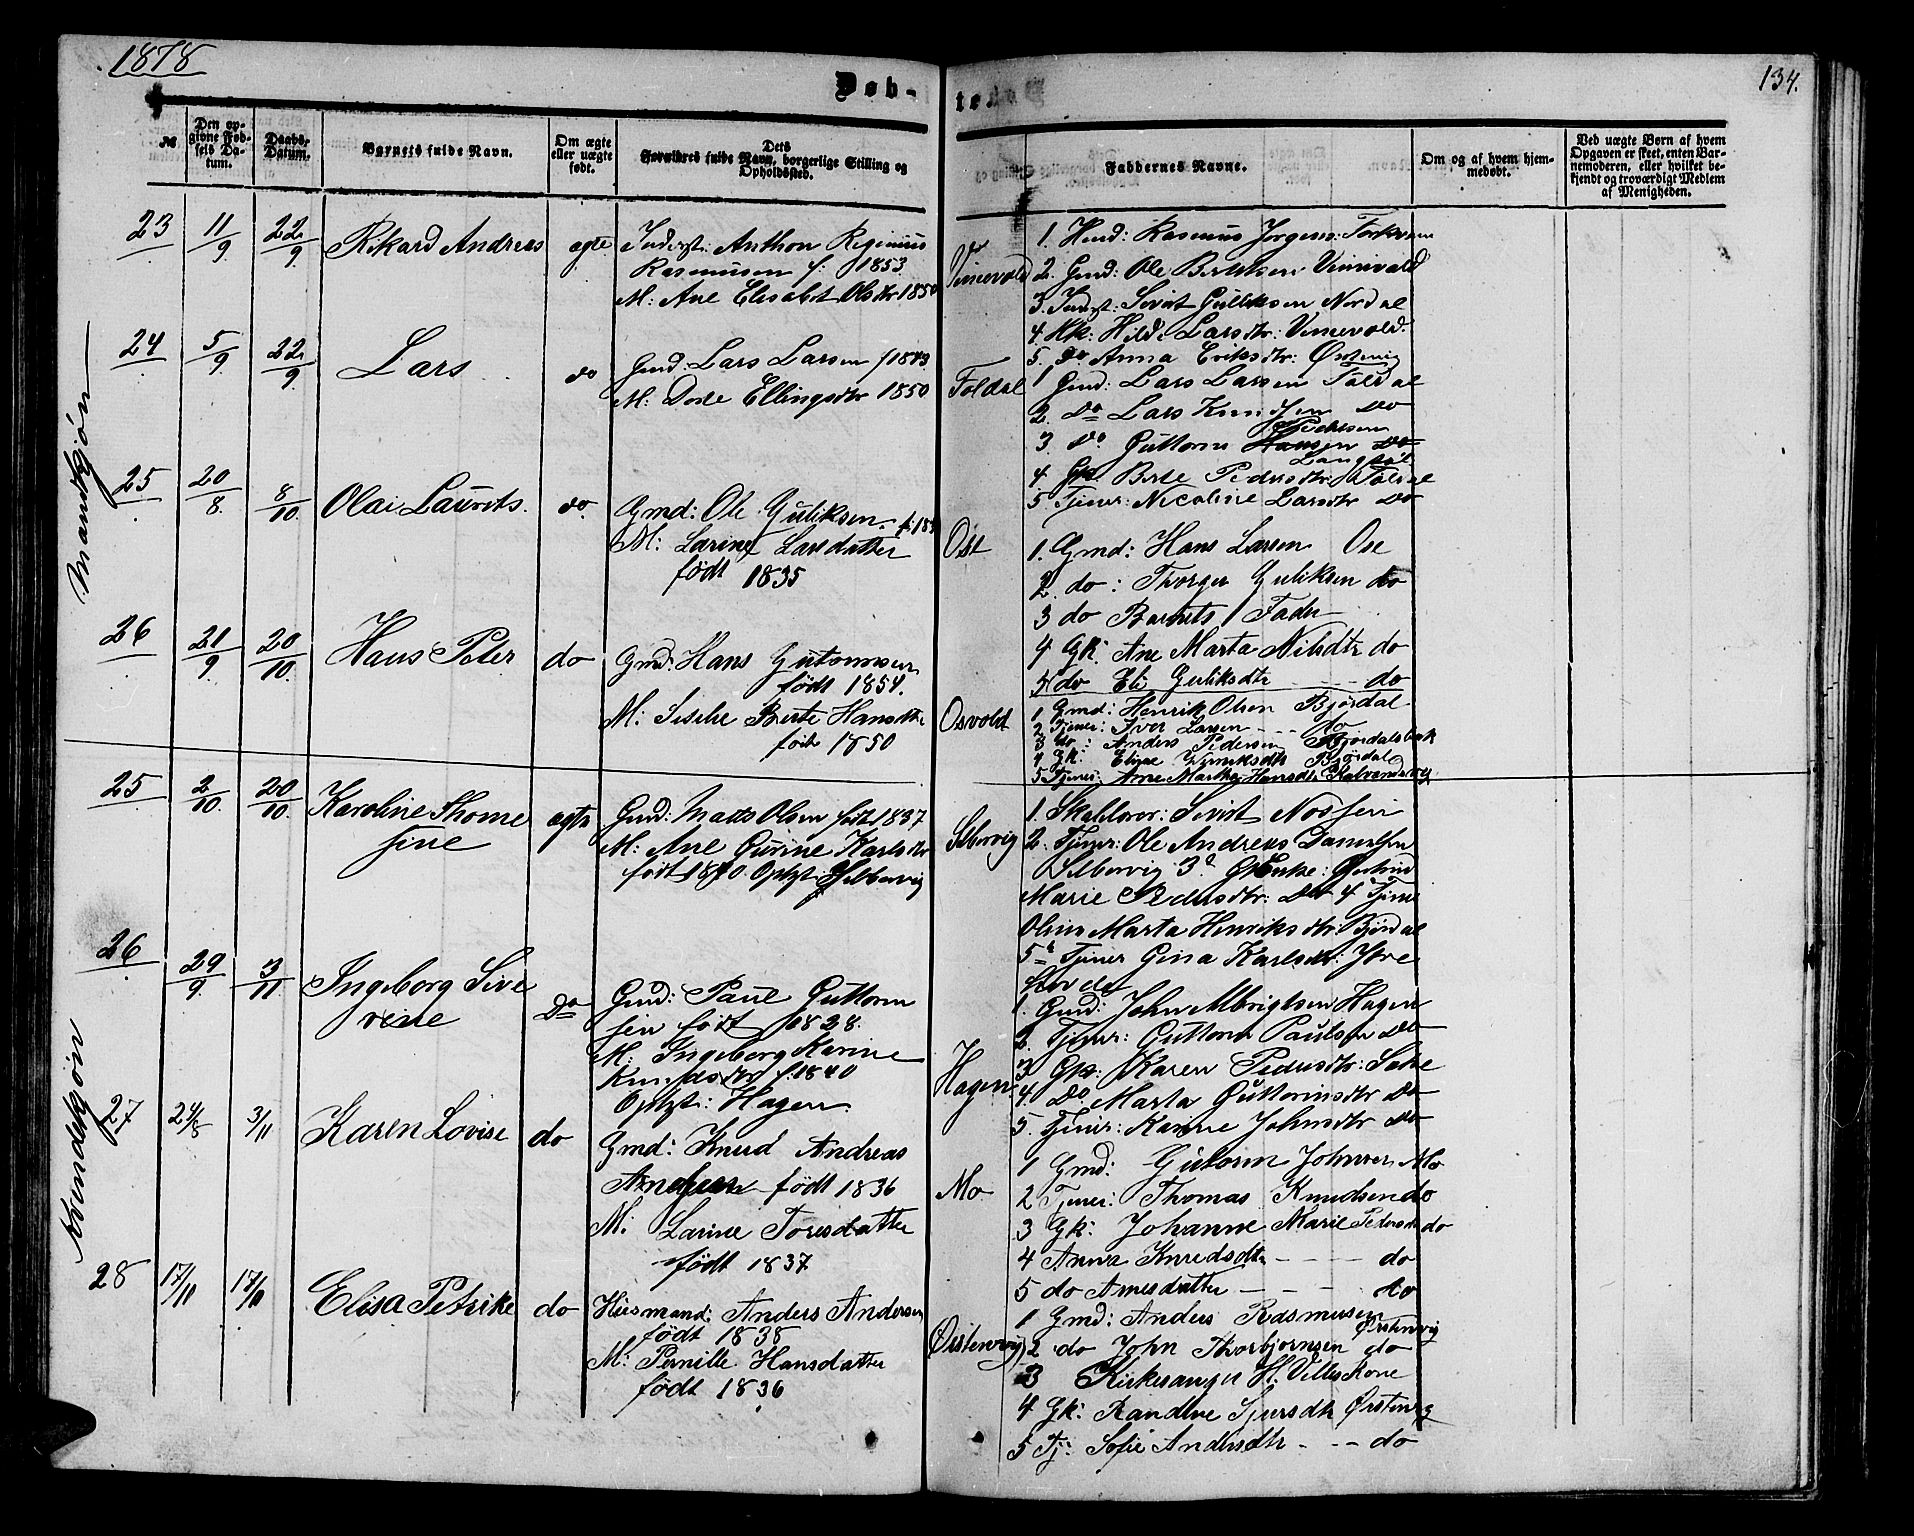 1878
134.
Døb-
te.
№
Den op-
givne Fød-
sels Da-
tum.
Daabs-
Datum.
Barnets fulde Navn.
Om ægte
eller uægte
født.
Dets
Forældres fulde Navn, borgerlige Stilling og
Opholdssted.
Faddernes Navne.
Om og af hvem hjem-
medøbt.
Ved uægte Børn af hvem
Opgaven er skeet, enten Bar-
nemoderen, eller hvilket be-
kjendt og troværdigt Medlem
af Menigheden.
Mandkjøn
23 11/9 22/9 Rikard Andreas ægte
Inderst: Anthon Reginius
Rasmusen f: 1853.
M: Ane Elisabet Olsdtr 1850
Vinnevold
1. Huusmd: Rasmus Jørgens:
2. Gmd: Ole Bertelsen Vinnevold
3. Inderst: Sivert Gulliksen Nordal
4. Kk: Hild: Larsdtr: Vinnevold.
5. do Anna Eriksdtr: Ørstenvig
24 5/9 22/9 Lars do
Gmd: Lars Larsen f 1843
M: Dorte Ellingsdtr 1850
Foldal
1 Gmd: Lars Larsen Foldal
2. do Lars Knudsen do
Pedersen
3 do Guttorm Hansen do
4 Gk Berte Pedersdtr Foldal
5 Tjener: Nicoline Larsdtr do
25 20/8 8/10 Olai Laurits. do.
Gmd: Ole Guliksen. f: 18
M: Larine Larsdatter
født 1835
Ose
1. Gmd: Hans Larsen Ose
2. do: Thorger Guliksen do
3 do Barnets Fader
4 Gk. Ane Marta Nilsdtr do
5 do Eli Guliksdtr - - - do
26 21/9 20/10 Hans Peter do
Gmd: Hans Gutormsen
født 1854.
M: Sische Berte Hansdtr
født 1850
Osvold
1 Gmd: Henrik Olsen Bjørdal
2 Tjener: Iver Larsen - - - do
3 do: Anders Pedersen Bjørdalsbak
4 Gk: Eline Henriksdtr Bjørdal
5 Tjener: Ane Marthe Hansdtr Kalvandsvig
Kvindekjøn
25 2/10 20/10 Karoline Thome
sine
ægte
Gmd: Matts Olsen født 1837
M: Ane Gurine Karlsdtr
født 1840 Opht: Silbervig
Silbervig
1. Skolelærer: Sivert Nossen
2. Tjener: Ole Andreas Danielsen
Silbervig 3. Gk Enke: Gjertrud
Marie Pedersdtr: do 4 Tjener
Oline Marta Henriksdtr Bjørdal
5 Tjener Gina Karlsdtr: Ytre
26 29/9 3/11 Ingeborg Sive
rine
do
Gmd: Paul Guttorm
sen født 1828.
M: Ingeborg Karine
Knudsdtr f: 1840
Opht: Hagen.
Hagen
1. Gmd: John Albrigtsen Hagen
2. Tjener: Guttorm Paulsen do
3 Gk: Karen Pedersdtr: Satre
4 do Marta Guttormsdtr do
5. Tjener: Karine Johnsdtr do
27 24/8 3/11 Karen Lovise do
Gmd: Knud Andreas
Andersen født 1836
M: Larine Toresdatter
født 1837
Mo
1 Gmd: Gutorm Johnsen Mo
2 Tjener: Thomas Knudsen do
3 Gk: Johanne Marie Pedersdtr do
4 Anna Knudsdtr - - - do
5 do Arnesdatter - - - do
28 17/10 17/11 Elisa Petrike do
Huusmand: Anders Andersen
født 1838
M: Pernille Hansdatter
født 1836
Ørstenvig
1 Gmd: Anders Rasmusen
Ørstenvig
2 do John Thorbjørnsen do
3 Kirkesanger H. Villes Kone
4 Gk: Randine Sjursdtr Ørstenvig
5 Tj: Sofie Andersdtr - - - do